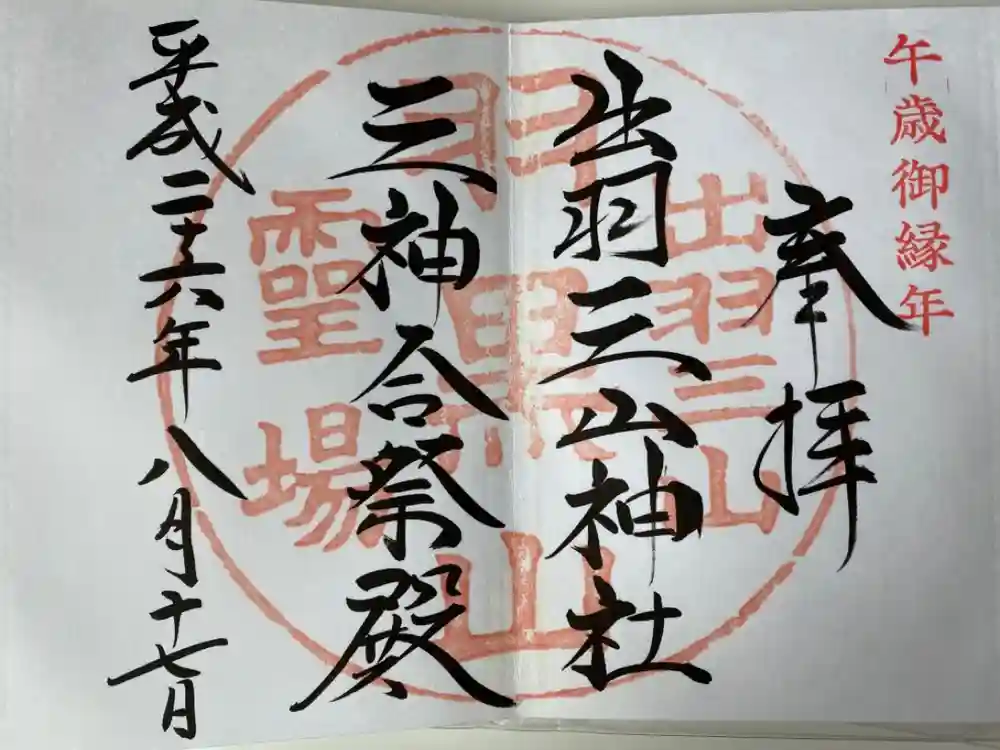 午歳御縁年
奉拝
出羽三山神社
三神合祭殿
平成二十六年八月十七日
出羽三山
羽黒山
霊場